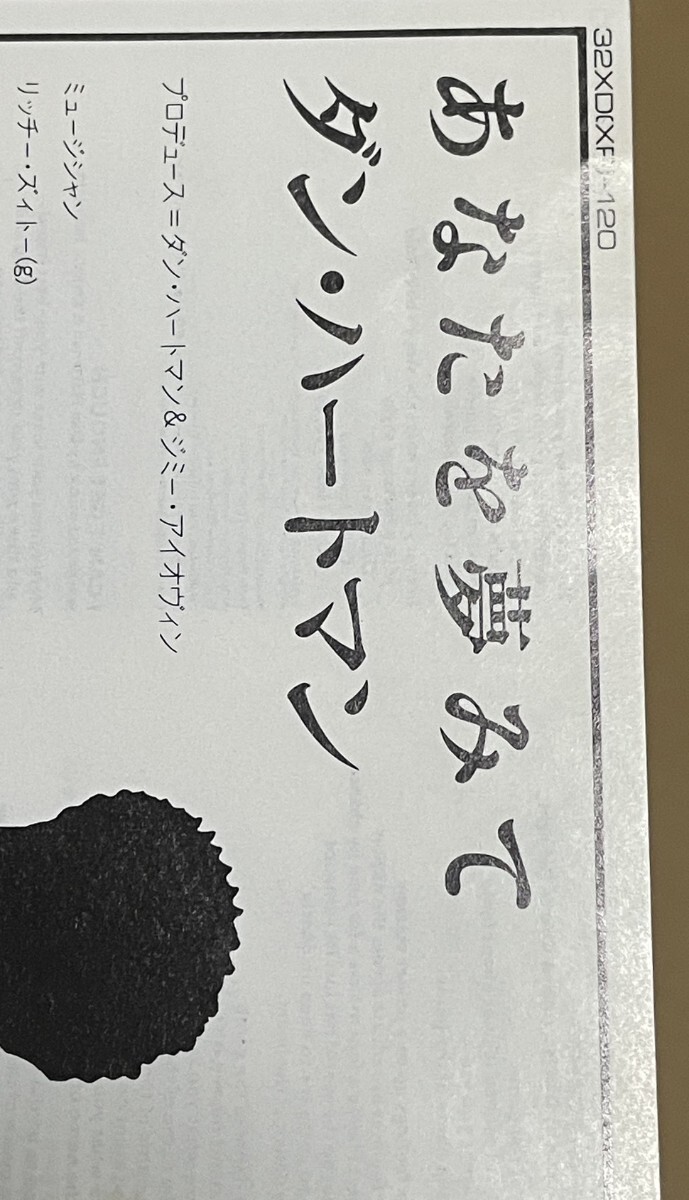 32XD(XF)-120
あなたを夢みて
ダン・ハートマン
プロデュース=ダン・ハートマン&ジミー・アイオヴィン
ミュージシャン
リッチー・ズィトー(g)